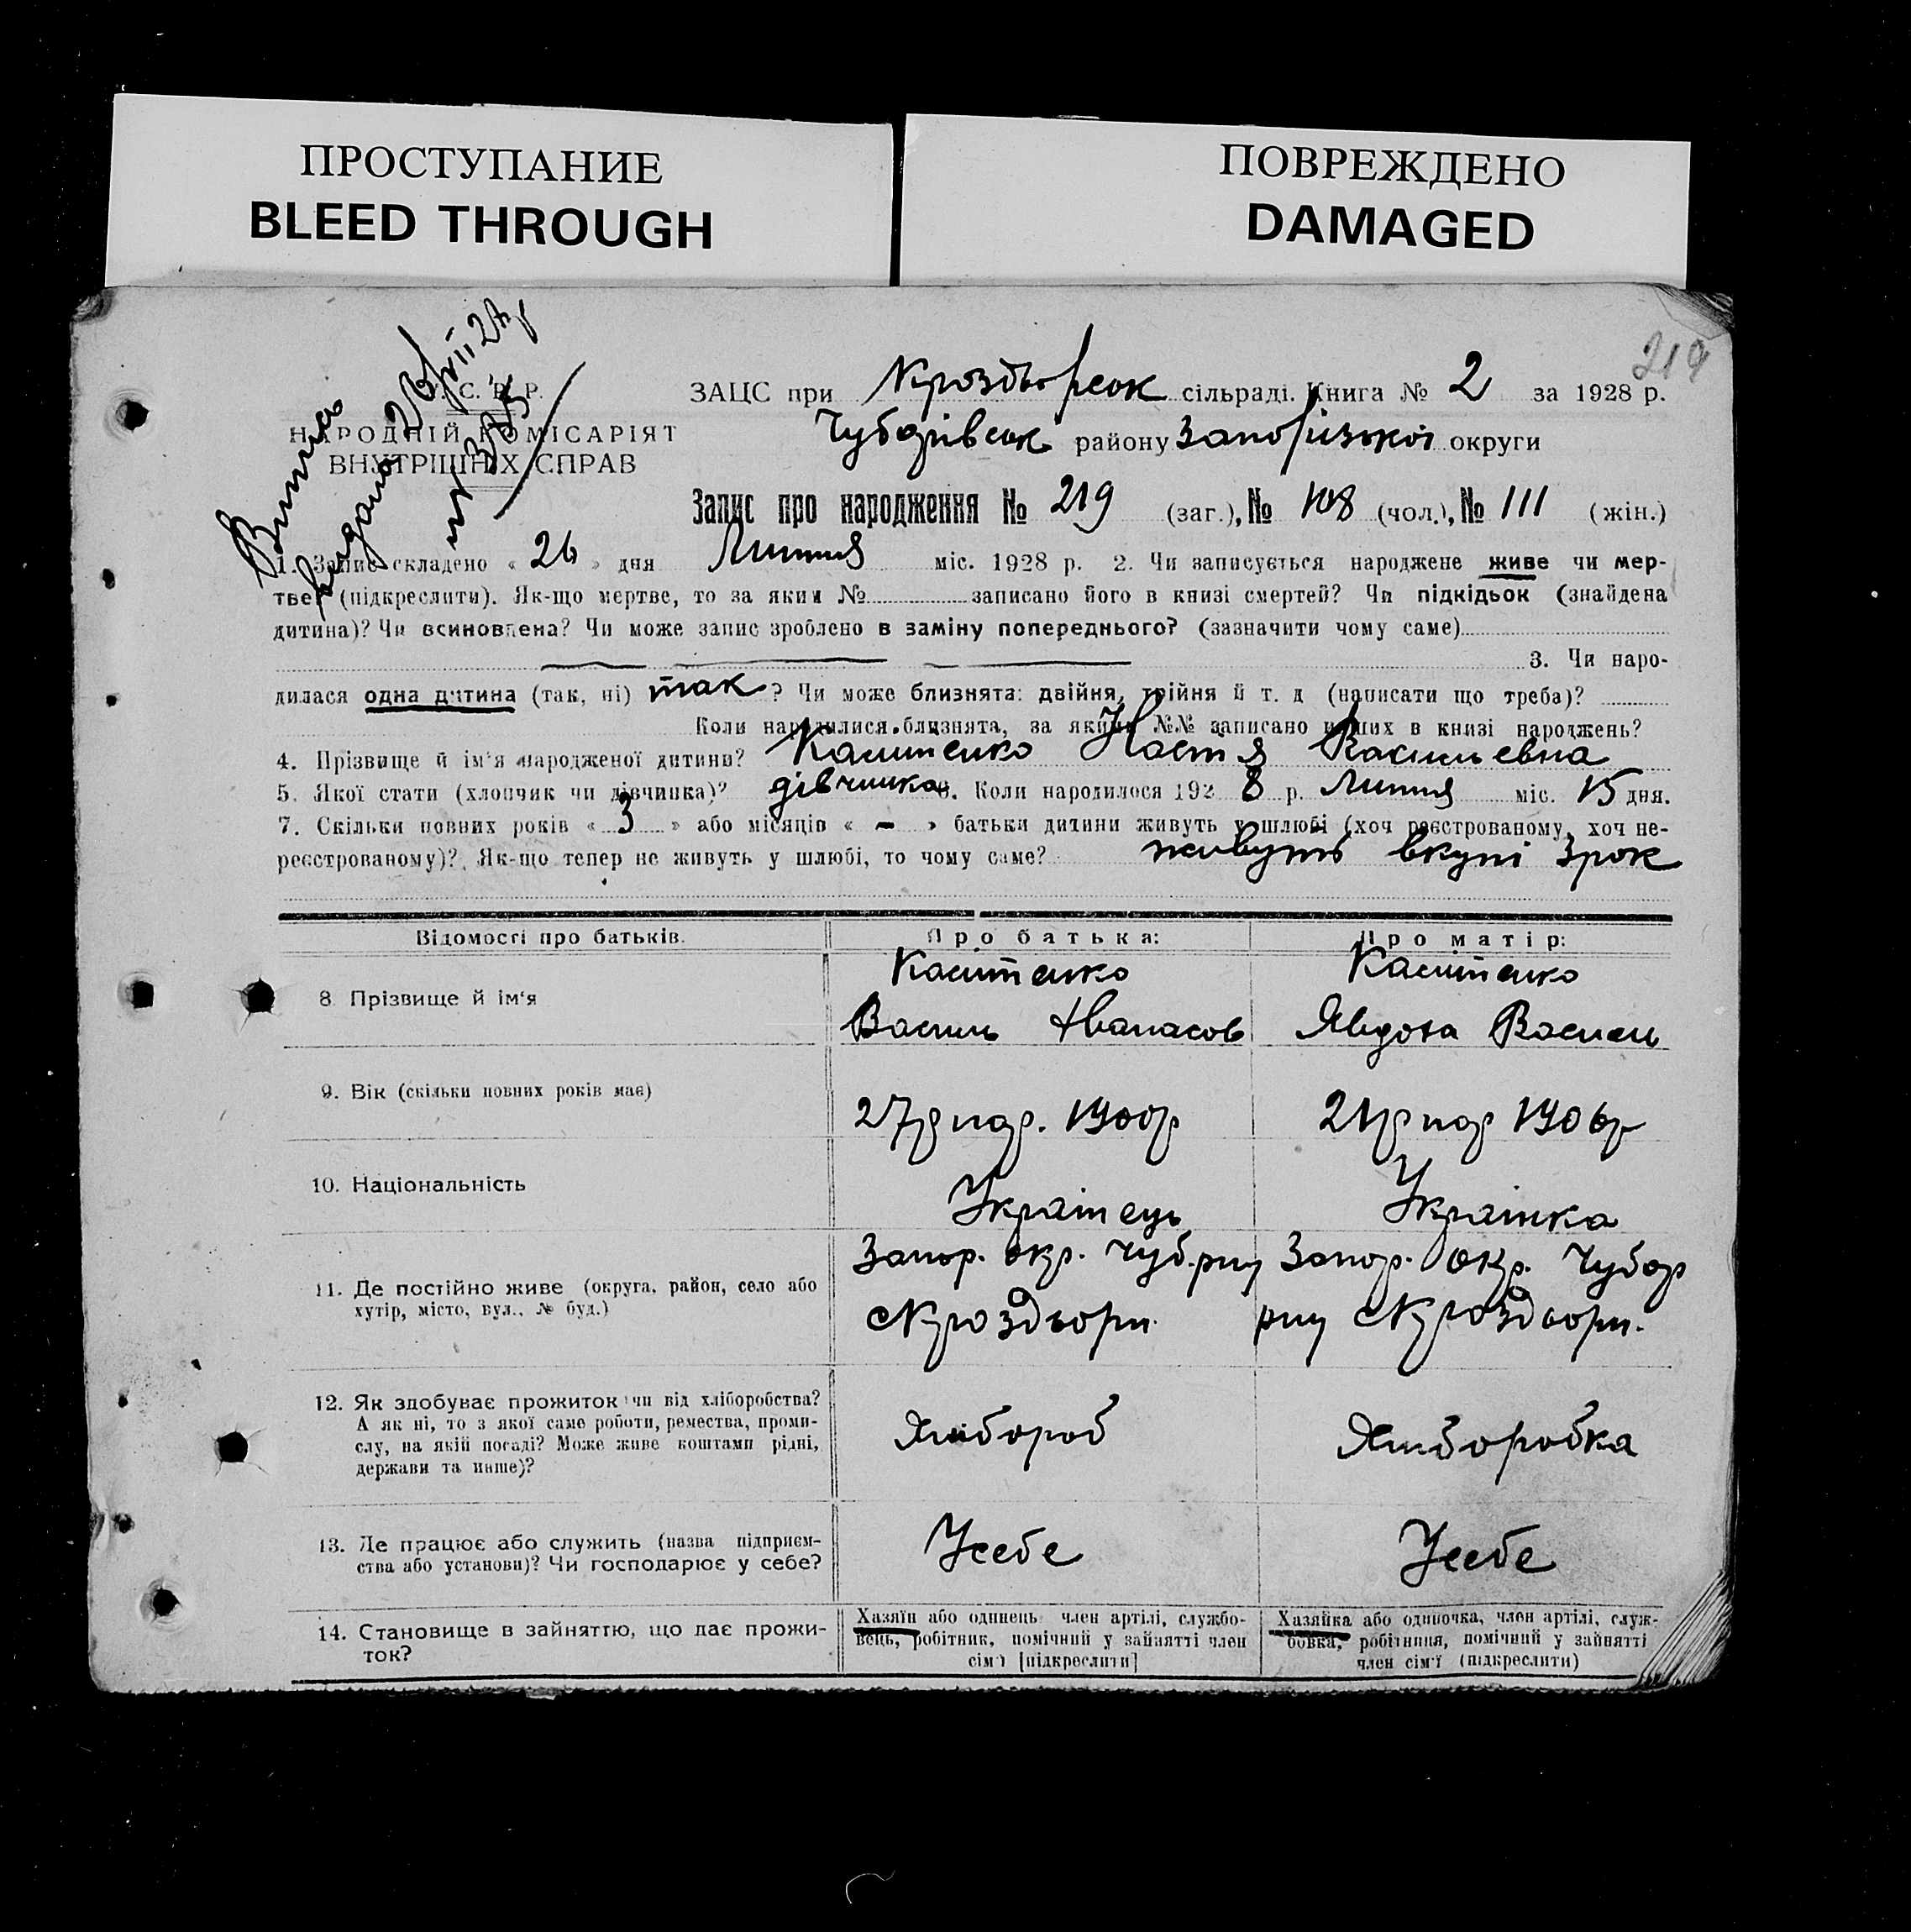 ПРОСТУПАНИЕ
BLEED THROUGH
ПОВРЕЖДЕНО
DAMAGED
219
У. С. Р. Р.
НАРОДНІЙ КОМІСАРІЯТ
ВНУТРІШНІХ СПРАВ
ЗАЦС при сільраді. Книга № 2 за 1928 р.
Чубарівськ району Запорізької округи
Запис про народження № 219 (заг.), № 108 (чол.), № 111 (жін.)
1. Запис складено « 26 » дня Липня міс. 1928 р. 2. Чи записується народжене живе чи мер-
тве? (підкреслити). Як-що мертве, то за яким № записано його в книзі смертей? Чи підкідьок (знайдена
дитина)? Чи всиновлена? Чи може запис зроблено в заміну попереднього? (зазначити чому саме)
3. Чи наро-
дилася одна дитина (так, ні) так ? Чи може близнята: двійня, трійня й т. д (написати що треба)?
Коли народилися близнята, за якими №№ записано инших в книзі народжень?
4. Прізвище й ім'я народженої дитини? Каситенко Настя Васильевна
5. Якої стати (хлопчик чи дівчинка)? дівчинка 6. Коли народилося 192 8 р. Липня міс. 15 дня.
7. Скільки повних років « 3 » або місяців « – » батьки дитини живуть у шлюбі (хоч реєстрованому, хоч не-
реєстрованому)? Як-що тепер не живуть у шлюбі, то чому саме? живуть вкупі 3 рок
Відомості про батьків. Про батька: Про матір:
8. Прізвище й ім'я
Каситенко
Василь Афанасов
Каситенко
Явдоха Василь
9. Вік (скільки повних років має)
27 р нар. 1900 р
21 р нар 1906 р
10. Національність
Українець
Українка
11. Де постійно живе (округа, район, село або
хутір, місто, вул., № буд.)
Запор. окр. Чуб.
Запор. окр. Чубар
12. Як здобуває прожиток чи від хліборобства?
А як ні, то з якої саме роботи, ремества, проми-
слу, на якій посаді? Може живе коштами рідні,
держави та инше)?
Хлібороб
Хліборобка
13. Де працює або служить (назва підприєм-
ства або установи)? Чи господарює у себе?
Усебе
Усебе
14. Становище в зайняттю, що дає прожи-
ток?
Хазяїн або одинець член артілі, службо-
вець, робітник, помічний у зайнятті член
сім'ї [підкреслити]
Хазяйка або одиночка, член артілі, служ-
бовка, робітниця, помічний у зайнятті
член сім'ї (підкреслити)